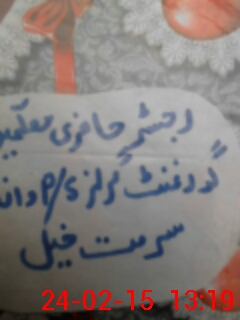 رجسٹر حاضری معلمین
گورنمنٹ گرلز P/S دانہ
سرمت خیل
24-02-15 13:19